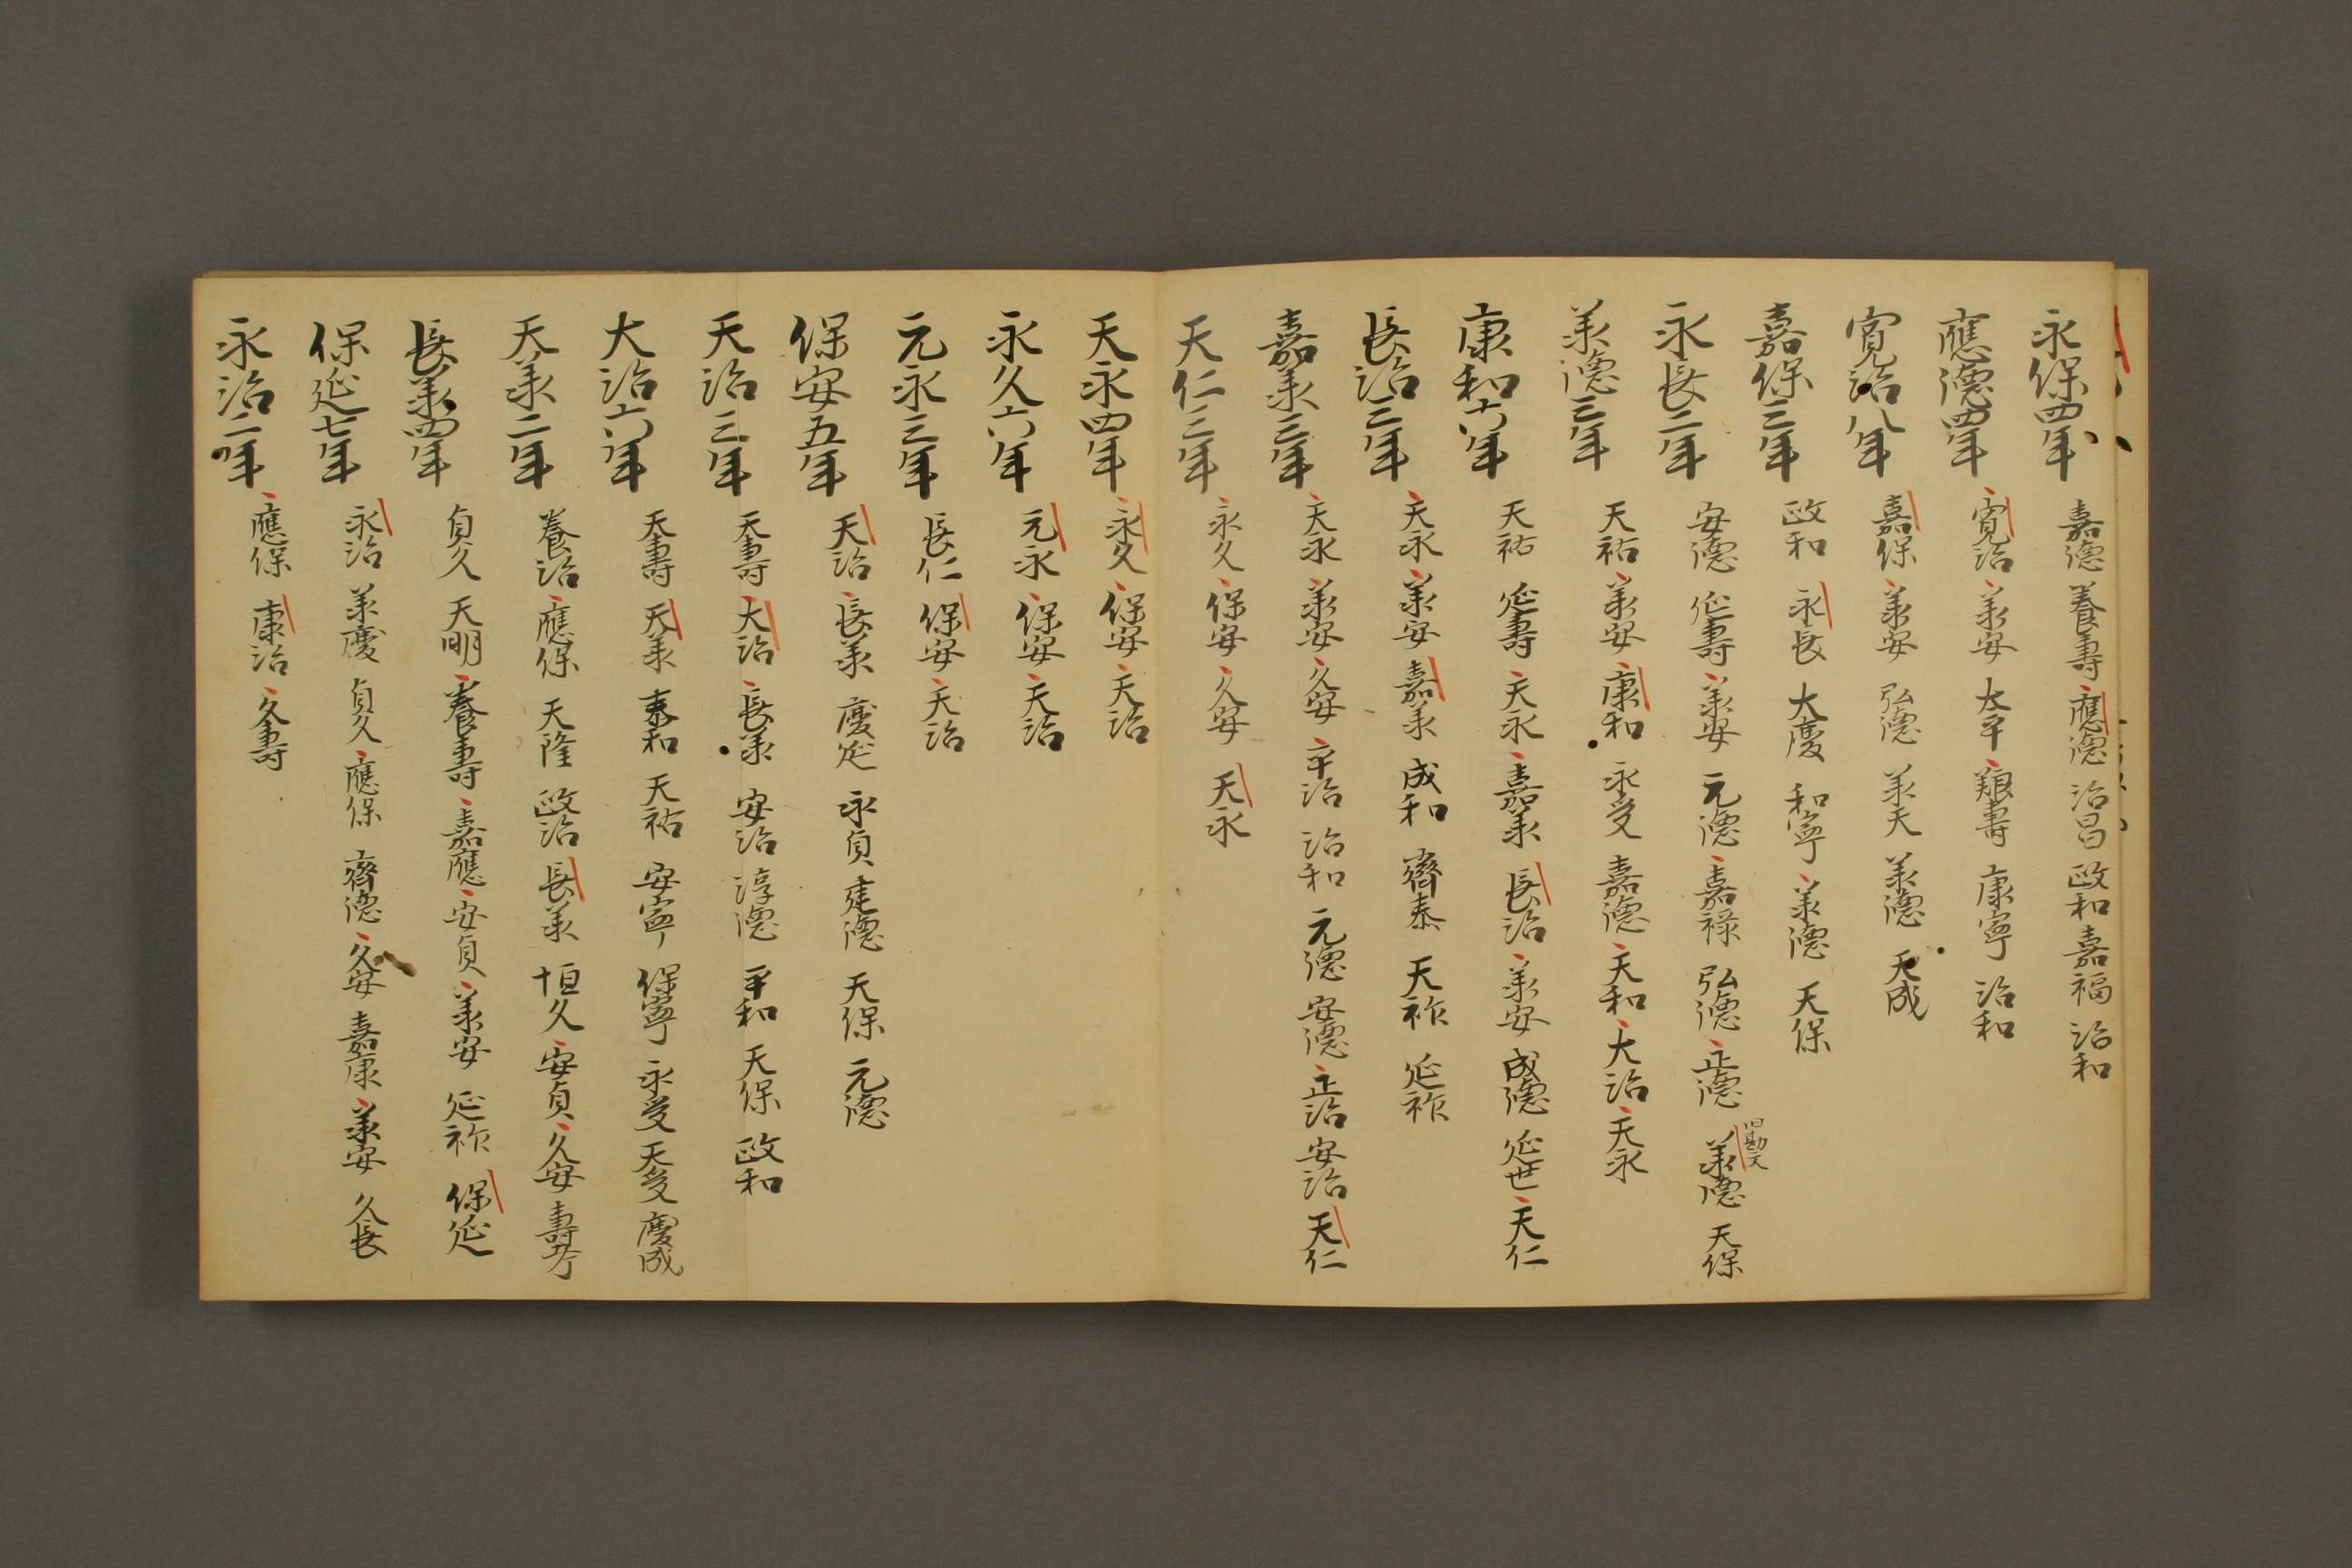 永保四年 嘉德 養壽 應德 治昌 政和 嘉福 治和
應德四年 寛治 承安 太平 艱壽 康寧 治和
寛治八年 嘉保 承安 弘德 承天 承德 天成
嘉保三年 政和 永長 大慶 和寧 承德 天保
永長二年 安德 延壽 承安 元德 嘉禄 弘德 正德 承德 旧勘文 天保
承德三年 天祐 承安 康和 永受 嘉德 天和 大治 天永
康和六年 天祐 延壽 天永 嘉承 長治 承安 成德 延世 天仁
長治三年 天永 承安 嘉承 成和 齊泰 天祚 延祚
嘉承三年 天永 承安 久安 平治 治和 元德 安德 正治 安治 天仁
天仁三年 永久 保安 久安 天永
天永四年 永久 保安 天治
永久六年 元永 保安 天治
元永三年 長仁 保安 天治
保安五年 天治 長承 慶延 永貞 建德 天保 元德
天治三年 天壽 大治 長承 安治 淳德 平和 天保 政和
大治六年 天壽 天承 泰和 天祐 安寧 保寧 永受 天受 慶成
天承二年 養治 應保 天隆 政治 長承 恒久 安貞 久安 壽考
長承四年 貞久 天明 養壽 嘉應 安貞 承安 延祚 保延
保延七年 永治 承慶 貞久 應保 齊德 久安 嘉康 承安 久長
永治二年 應保 康治 久壽